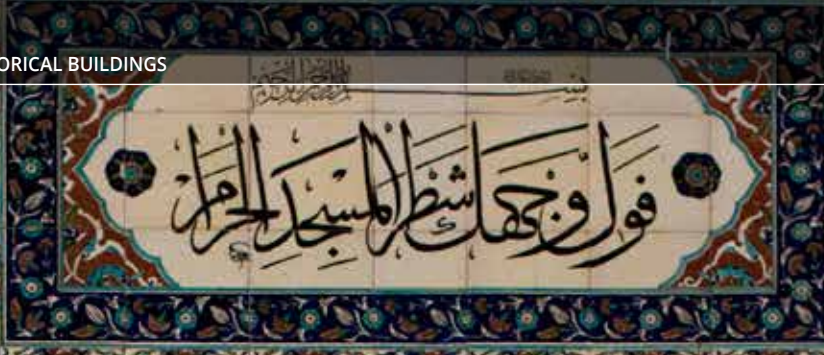 ORICAL BUILDINGS
بسم الله الرحمن الرحيم
فَوَلِّ وَجْهَكَ شَطْرَ الْمَسْجِدِ الْحَرَامِ